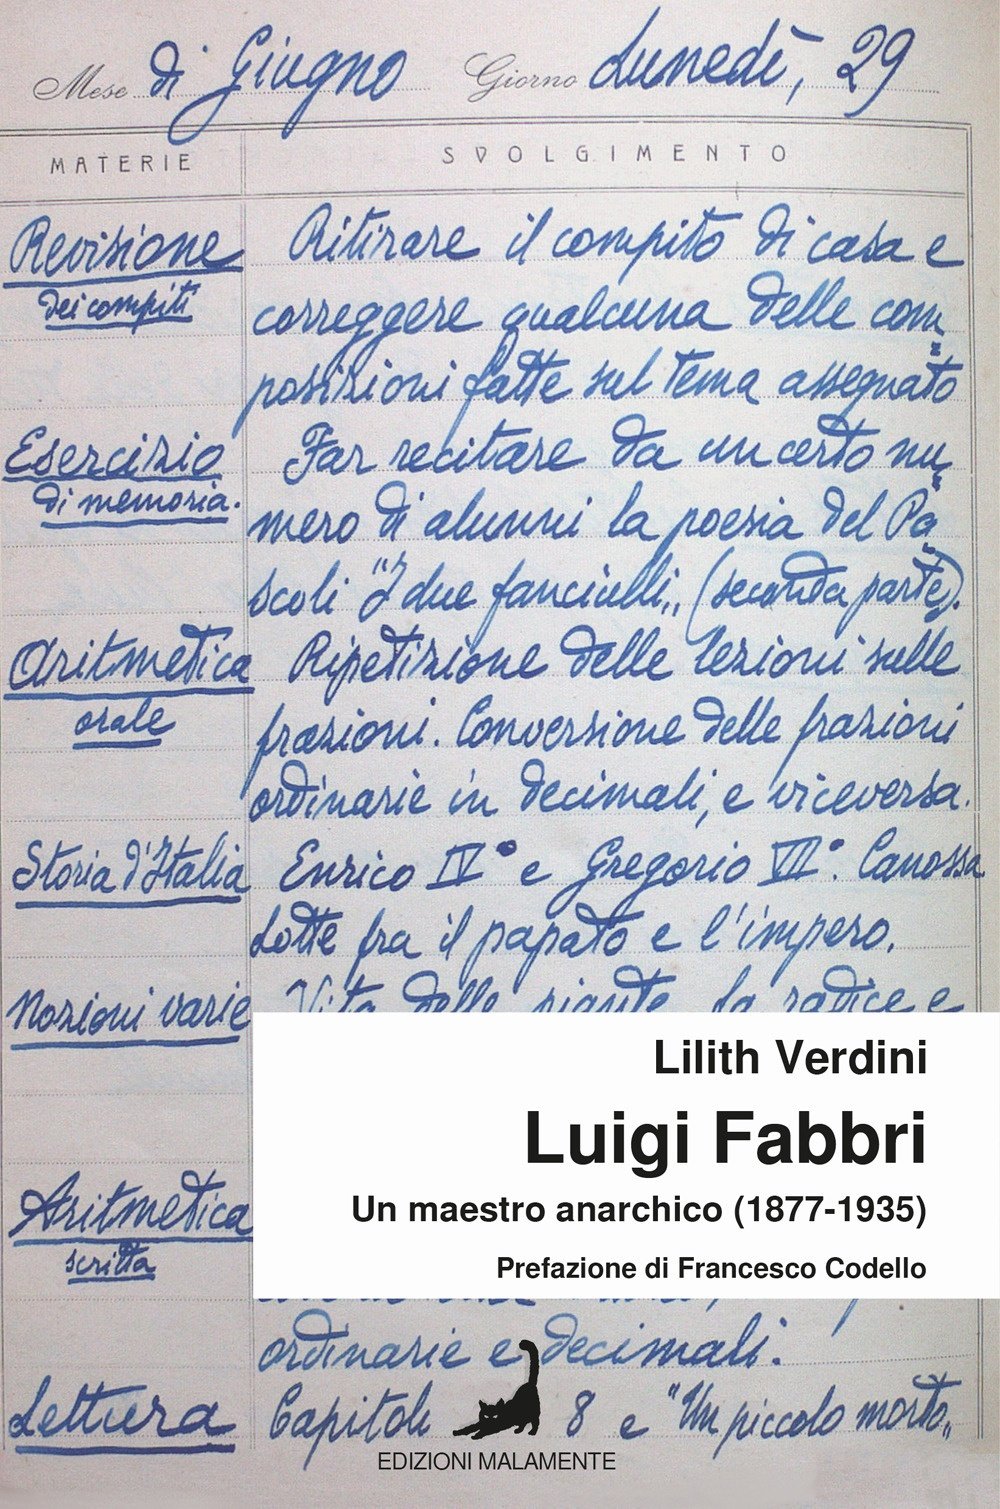 Mese di Giugno Giorno Lunedì, 29
MATERIE SVOLGIMENTO
Revisione
dei compiti
Ritirare il compito di casa e
correggere qualcuna delle com=
posizioni fatte sul tema assegnato
Esercizio
di memoria.
Far recitare da un certo nu=
mero di alunni la poesia del Pa=
scoli "I due fanciulli„ (seconda parte).
Aritmetica
orale
Ripetizione delle lezioni sulle
frazioni. Conversione delle frazioni
ordinarie in decimali, e viceversa.
Storia d'Italia
Enrico IV° e Gregorio VII°. Canossa
Lotte fra il papato e l'impero.
Nozioni varie
Vita delle piante. La radice e
Aritmetica
scritta
ordinarie e decimali.
Lettura
Capitoli 8 e "Un piccolo morto„
Lilith Verdini
Luigi Fabbri
Un maestro anarchico (1877-1935)
Prefazione di Francesco Codello
EDIZIONI MALAMENTE